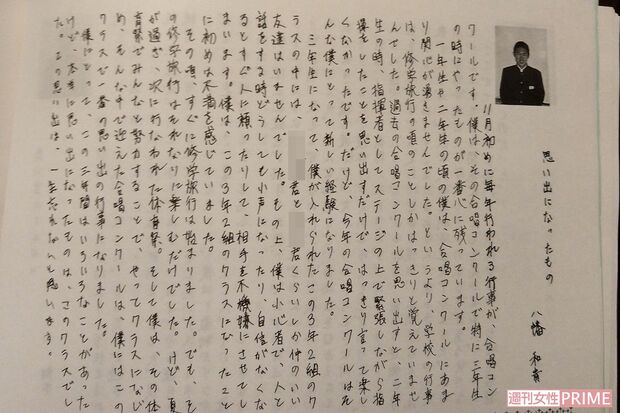 思い出になったもの
八幡 和育
11月初めに毎年行われる行事が、合唱コン
クールです。僕は、その合唱コンクールで特に三年生
の時にやったものが一番心に残っています。
一年生や二年生の頃の僕は、合唱コンクールにあま
り関心が湧きませんでした。というより、学校の行事
は、修学旅行の頃のことしかはっきりと覚えていませ
んでした。過去の合唱コンクールを思い出すと、二年
生の時、指揮者としてステージの上で緊張しながら指
揮をしたことを思い出すだけで、はっきり言って楽し
くなかったです。だけど、今年の合唱コンクールはそ
んな僕にとって新しい経験になりました。
三年生になって、僕が入れられたこの3年2組のク
ラスの中には、 君と 君くらいしか仲のいい
友達はいませんでした。その上、僕は小心者で、人と
話をする時どうしても小声になったり、自信がなくな
るとすぐ人に頼ったりして、相手を不機嫌にさせてし
まいます。僕は、この3年2組のクラスになったこと
に初めは不満を感じていました。
その頃、すぐに修学旅行は始まりました。でも、そ
の修学旅行はそれなりに楽しむだけでした。けど、夏
が過ぎ、次に行なわれた体育祭。そして僕は、その体
育祭でみんなと努力することで、やっとクラスになじ
め、そんな中で迎えた合唱コンクールは、僕にはこの
クラスで一番の思い出の行事になりました。
僕にとって、この三年間はいろいろなことがあった
けど、本当に思い出になったものは、このクラスでし
た。この思い出は、一生忘れないと思います。
週刊女性PRIME